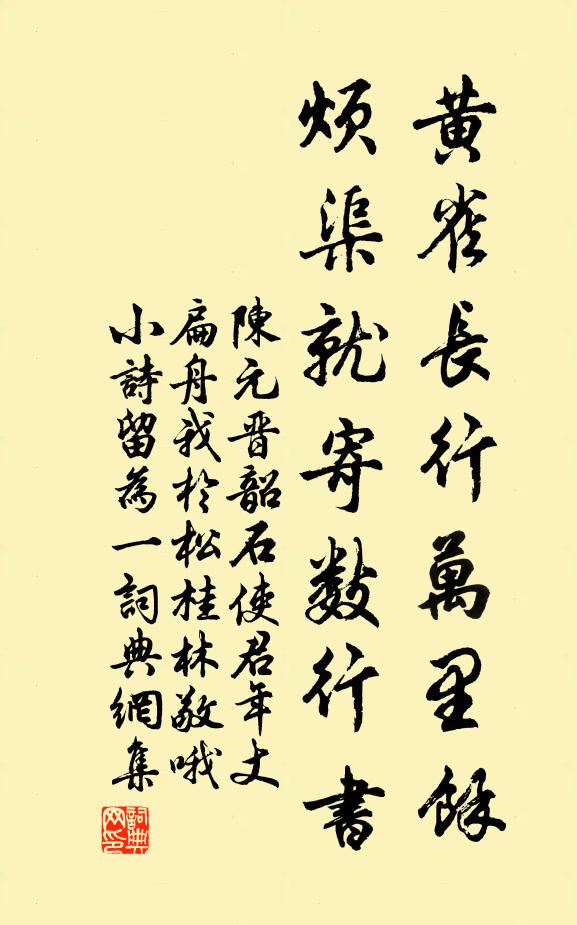 黃雀長行萬里餘
煩渠就寄數行書
陳元晉韶石使君年丈
扁舟我於松桂林敬哦
小詩留為一詞典網集
詞典網印